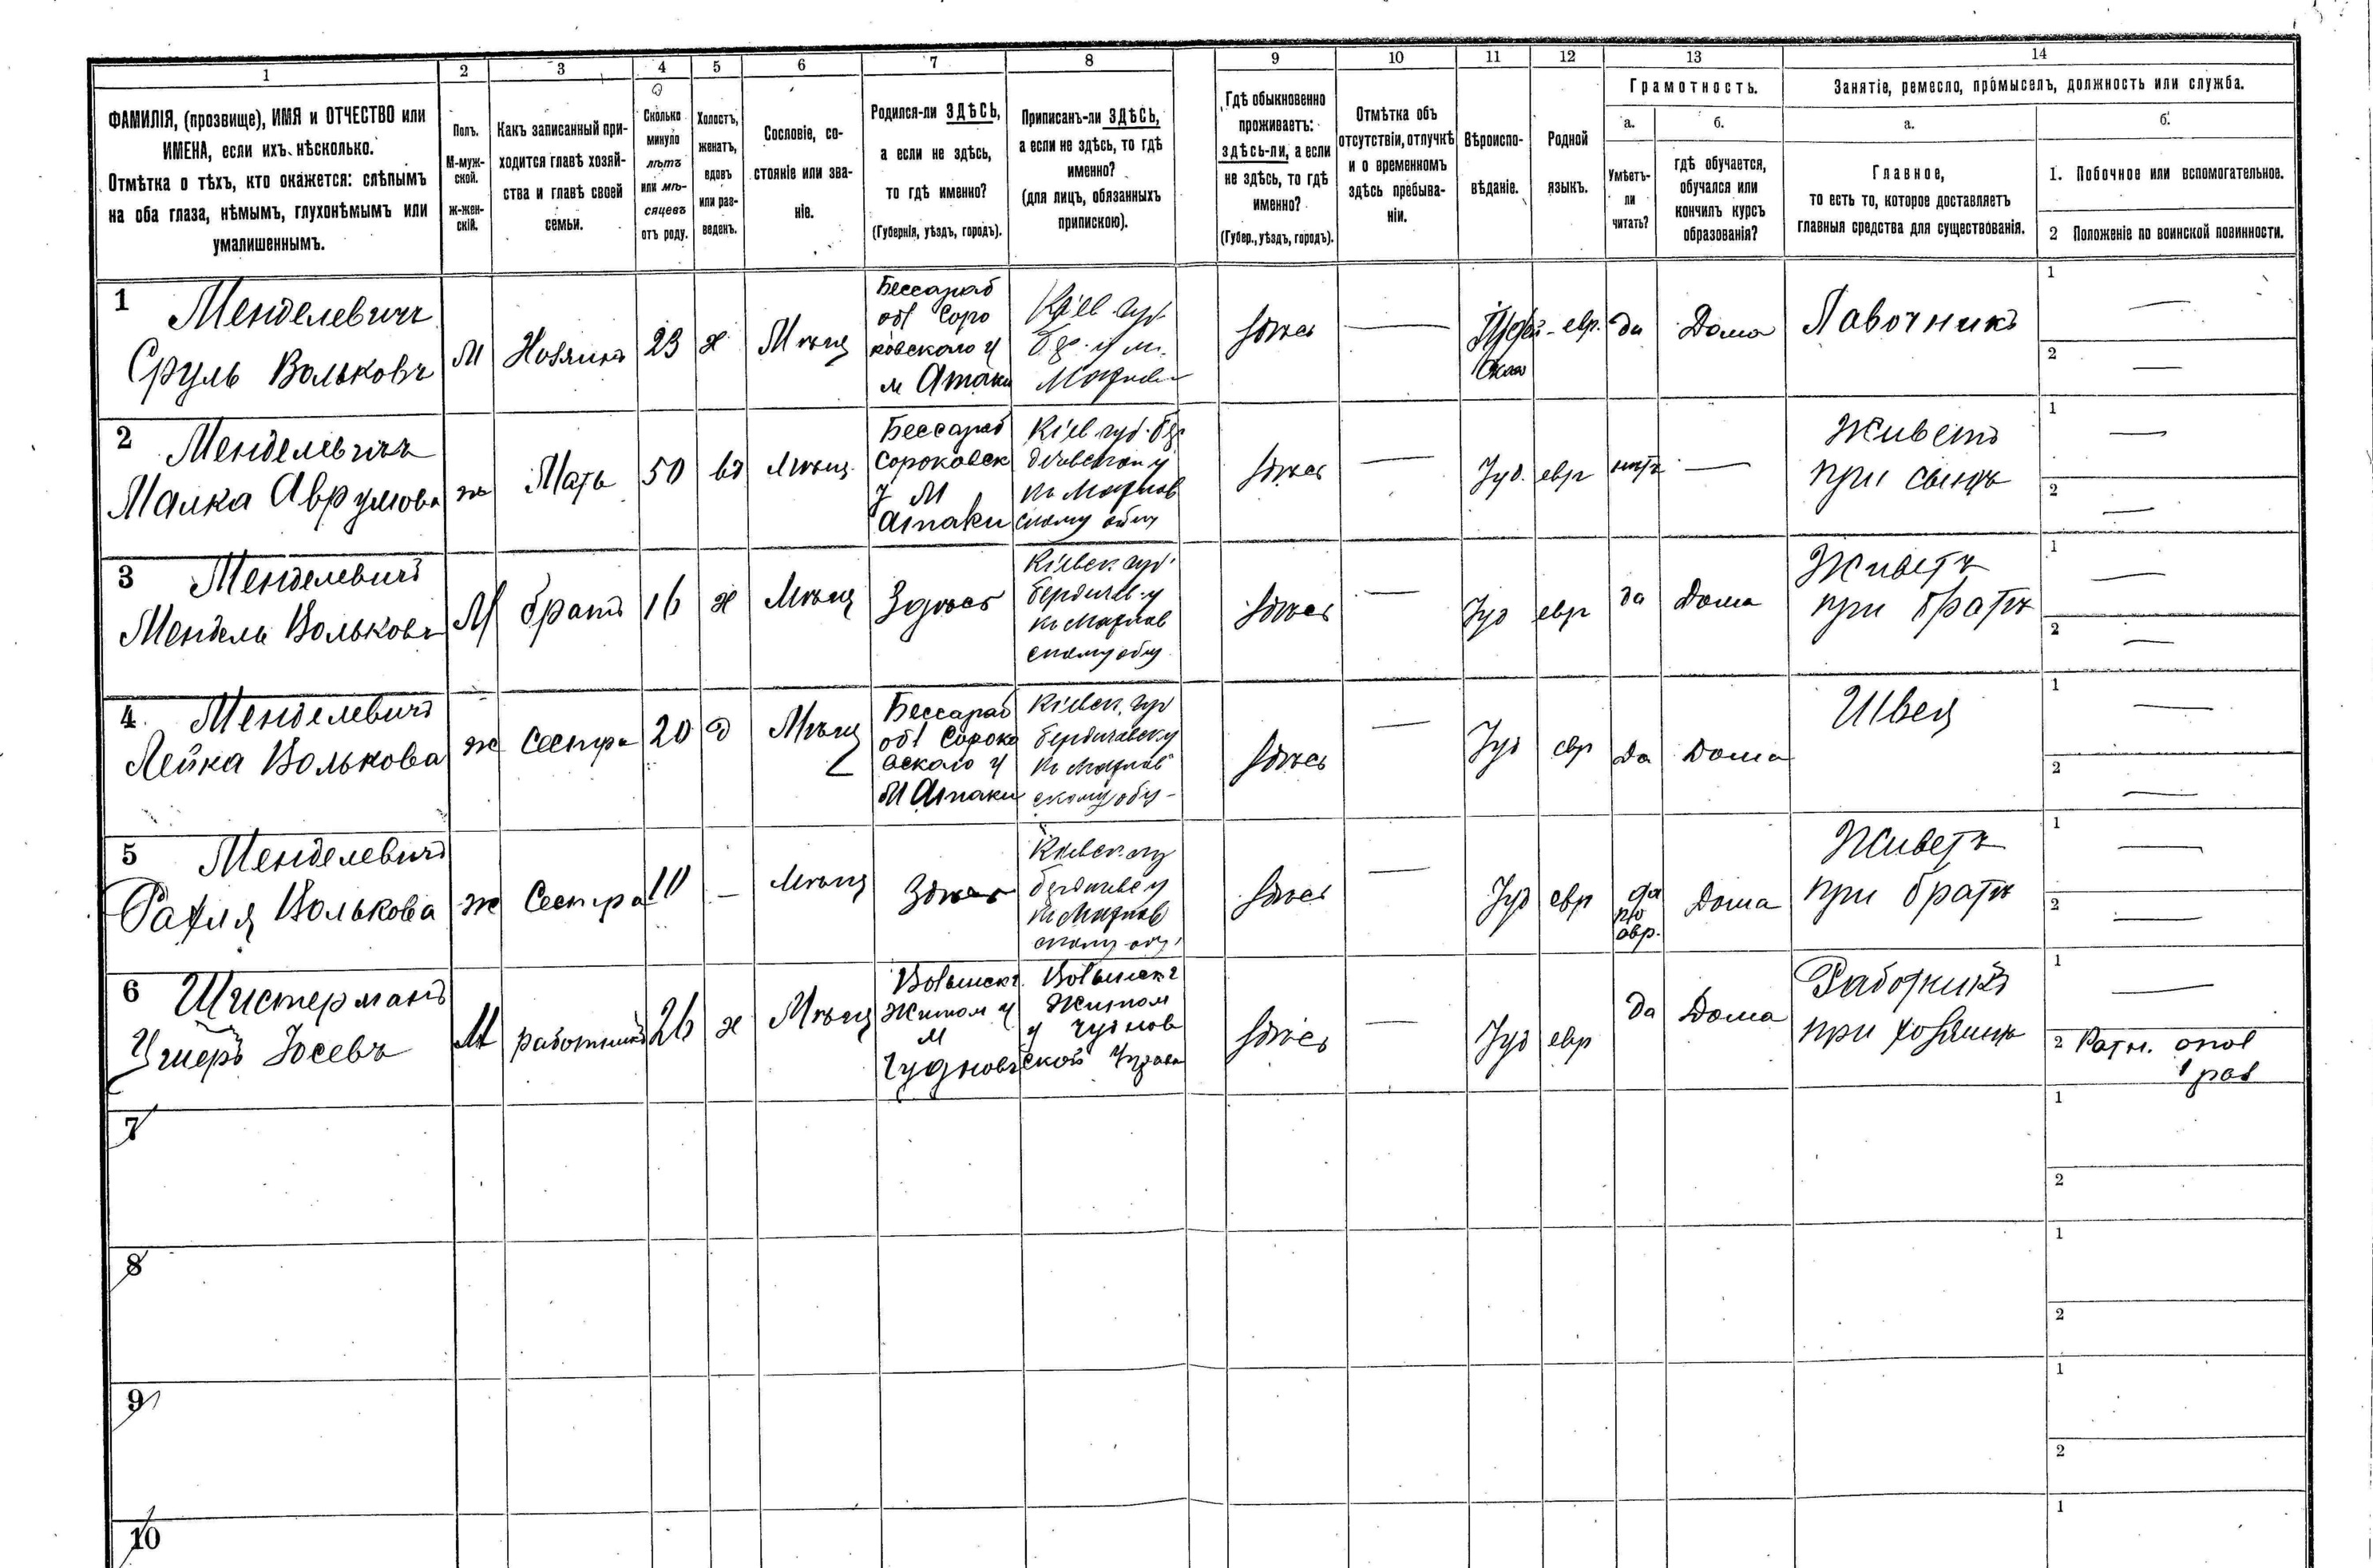 1
2
3
4
5
6
7
8
9
10
11
12
13
14
ФАМИЛІЯ, (прозвище), ИМЯ и ОТЧЕСТВО или
ИМЕНА, если ихъ нѣсколько.
Отмѣтка о тѣхъ, кто окажется: слѣпымъ
на оба глаза, нѣмымъ, глухонѣмымъ или
умалишеннымъ.
Полъ.
М-муж-
ской.
ж-жен-
скій.
Какъ записанный при-
ходится главѣ хозяй-
ства и главѣ своей
семьи.
Сколько
минуло
лѣтъ
или мѣ-
сяцевъ
отъ роду.
Холостъ,
женатъ,
вдовъ
или раз-
веденъ.
Сословіе, со-
стояніе или зва-
ніе.
Родился-ли ЗДѢСЬ,
а если не здѣсь,
то гдѣ именно?
(Губернія, уѣздъ, городъ).
Приписанъ-ли ЗДѢСЬ,
а если не здѣсь, то гдѣ
именно?
(для лицъ, обязанныхъ
припискою).
Гдѣ обыкновенно
проживаетъ:
здѣсь-ли, а если
не здѣсь, то гдѣ
именно?
(Губер., уѣздъ, городъ).
Отмѣтка объ
отсутствіи, отлучкѣ
и о временномъ
здѣсь пребыва-
ніи.
Вѣроиспо-
вѣданіе.
Родной
языкъ.
Грамотность.
а.
Умѣетъ-
ли
читать?
б.
гдѣ обучается,
обучался или
кончилъ курсъ
образованія?
Занятіе, ремесло, промыселъ, должность или служба.
а.
Главное,
то есть то, которое доставляетъ
главныя средства для существованія.
б.
1. Побочное или вспомогательное.
2 Положеніе по воинской повинности.
1 Менделевичъ
Сруль Вольковъ
М
Хозяинъ
23
х
Мѣщ
Бессараб
обл Соро
ковского у
м Атаки
Кіев губ
Здѣсь
евр.
да
Дома
Лавочникъ
1
2
2 Менделевичъ
Малка Аврумова
ж
Мать
50
вд
Мѣщ
Бессараб
Сороковск
у М
Атаки
Кіев губ. Бер
дичевскои у
скому общ
Здѣсь
Іуд.
евр
нѣтъ
Живетъ
при сынѣ
1
2
3 Менделевичъ
Мендель Вольковъ
М
братъ
16
х
Мѣщ
Здѣсь
Кіевск губ.
Бердичев. у
скому общ
Здѣсь
Іуд
евр
да
Дома
Живетъ
при братѣ
1
2
4. Менделевичъ
Лейка Волькова
ж
Сестра
20
д
Мѣщ
Бессараб
обл Сороко
вского у
М Атаки
Кіевск. губ
Бердичевск у
скому общ
Здѣсь
Іуд
евр
да
Дома
Швея
1
2
5 Менделевичъ
Рахля Волькова
ж
Сестра
10
Мѣщ
Здѣсь
Кіевск. гу
Бердичев у
скому общ
Здѣсь
Іуд
евр
да
по
евр.
Дома
Живетъ
при братѣ
1
2
6 Шистерманъ
Іосевъ
М
работникъ
26
х
Мѣщ
Волынск г.
Житом у
М
Чудновъ
Волынск г
Житом
у Чуднов
ской Управ
Здѣсь
Іуд
евр
да
Дома
Работникъ
при хозяинѣ
1
2 Ратн. опол
1 раз
7
1
2
8
1
2
9
1
2
10
1